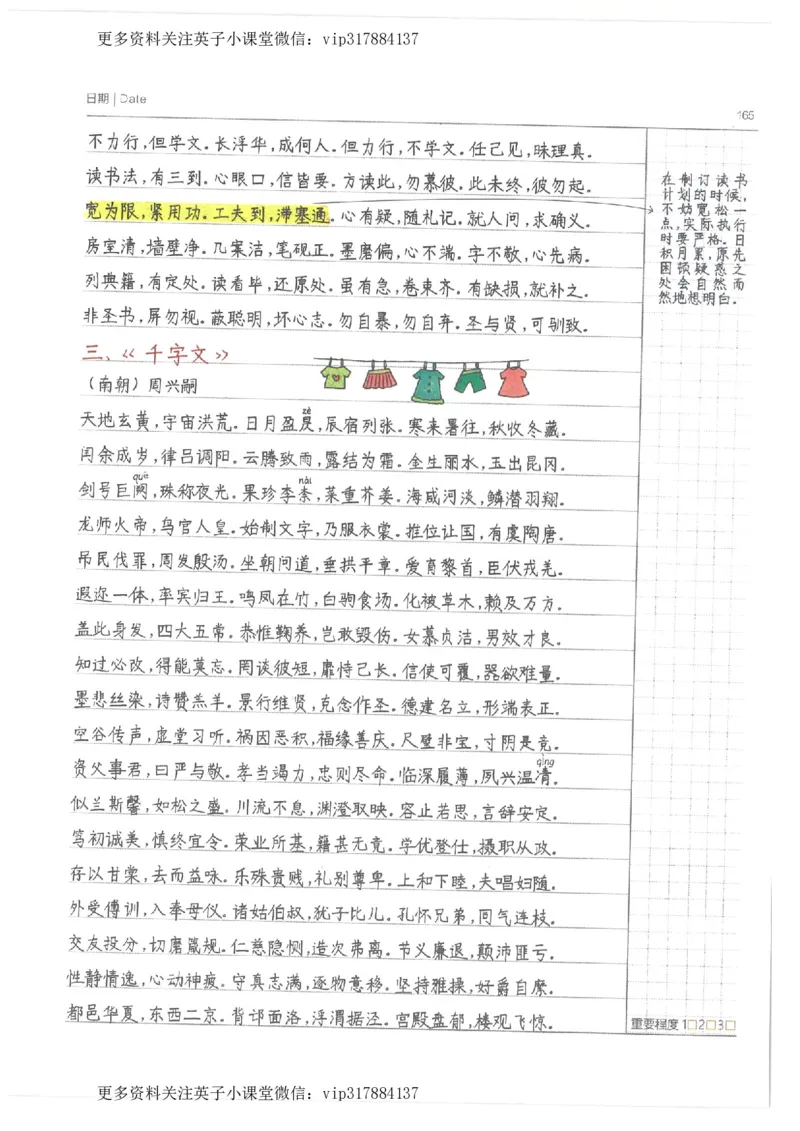 更多资料关注英子小课堂微信：vip317884137
日期 | Date
165
不力行,但学文.长浮华,成何人.但力行,不学文.任己见,昧理真.
读书法,有三到.心眼口,信皆要.方读此,勿慕彼.此未终,彼勿起.
宽为限,紧用功.工夫到,滞塞通.心有疑,随札记.就人问,求确义.
房室清,墙壁净.几案洁,笔砚正.墨磨偏,心不端.字不敬,心先病.
列典籍,有定处.读看毕,还原处.虽有急,卷束齐.有缺损,就补之.
非圣书,屏勿视.蔽聪明,坏心志.勿自暴,勿自弃.圣与贤,可驯致.
在制订读书
计划的时候,
不妨宽松一
点,实际执行
时要严格。日
积月累,原先
困顿疑惑之
处会自然而
然地想明白。
三、《千字文》
（南朝）周兴嗣
zè
天地玄黄,宇宙洪荒.日月盈昃,辰宿列张.寒来暑往,秋收冬藏.
闰余成岁,律吕调阳.云腾致雨,露结为霜.金生丽水,玉出昆冈.
què nài
剑号巨阙,珠称夜光.果珍李柰,菜重芥姜.海咸河淡,鳞潜羽翔.
龙师火帝,鸟官人皇.始制文字,乃服衣裳.推位让国,有虞陶唐.
吊民伐罪,周发殷汤.坐朝问道,垂拱平章.爱育黎首,臣伏戎羌.
遐迩一体,率宾归王.鸣凤在竹,白驹食场.化被草木,赖及万方.
盖此身发,四大五常.恭惟鞠养,岂敢毁伤.女慕贞洁,男效才良.
知过必改,得能莫忘.罔谈彼短,靡恃己长.信使可覆,器欲难量.
墨悲丝染,诗赞羔羊.景行维贤,克念作圣.德建名立,形端表正.
空谷传声,虚堂习听.祸因恶积,福缘善庆.尺璧非宝,寸阴是竞.
qìng
资父事君,曰严与敬.孝当竭力,忠则尽命.临深履薄,夙兴温清.
似兰斯馨,如松之盛.川流不息,渊澄取映.容止若思,言辞安定.
笃初诚美,慎终宜令.荣业所基,籍甚无竟.学优登仕,摄职从政.
存以甘棠,去而益咏.乐殊贵贱,礼别尊卑.上和下睦,夫唱妇随.
外受傅训,入奉母仪.诸姑伯叔,犹子比儿.孔怀兄弟,同气连枝.
交友投分,切磨箴规.仁慈隐恻,造次弗离.节义廉退,颠沛匪亏.
性静情逸,心动神疲.守真志满,逐物意移.坚持雅操,好爵自縻.
都邑华夏,东西二京.背邙面洛,浮渭据泾.宫殿盘郁,楼观飞惊.
重要程度 1□2□3□
更多资料关注英子小课堂微信：vip317884137